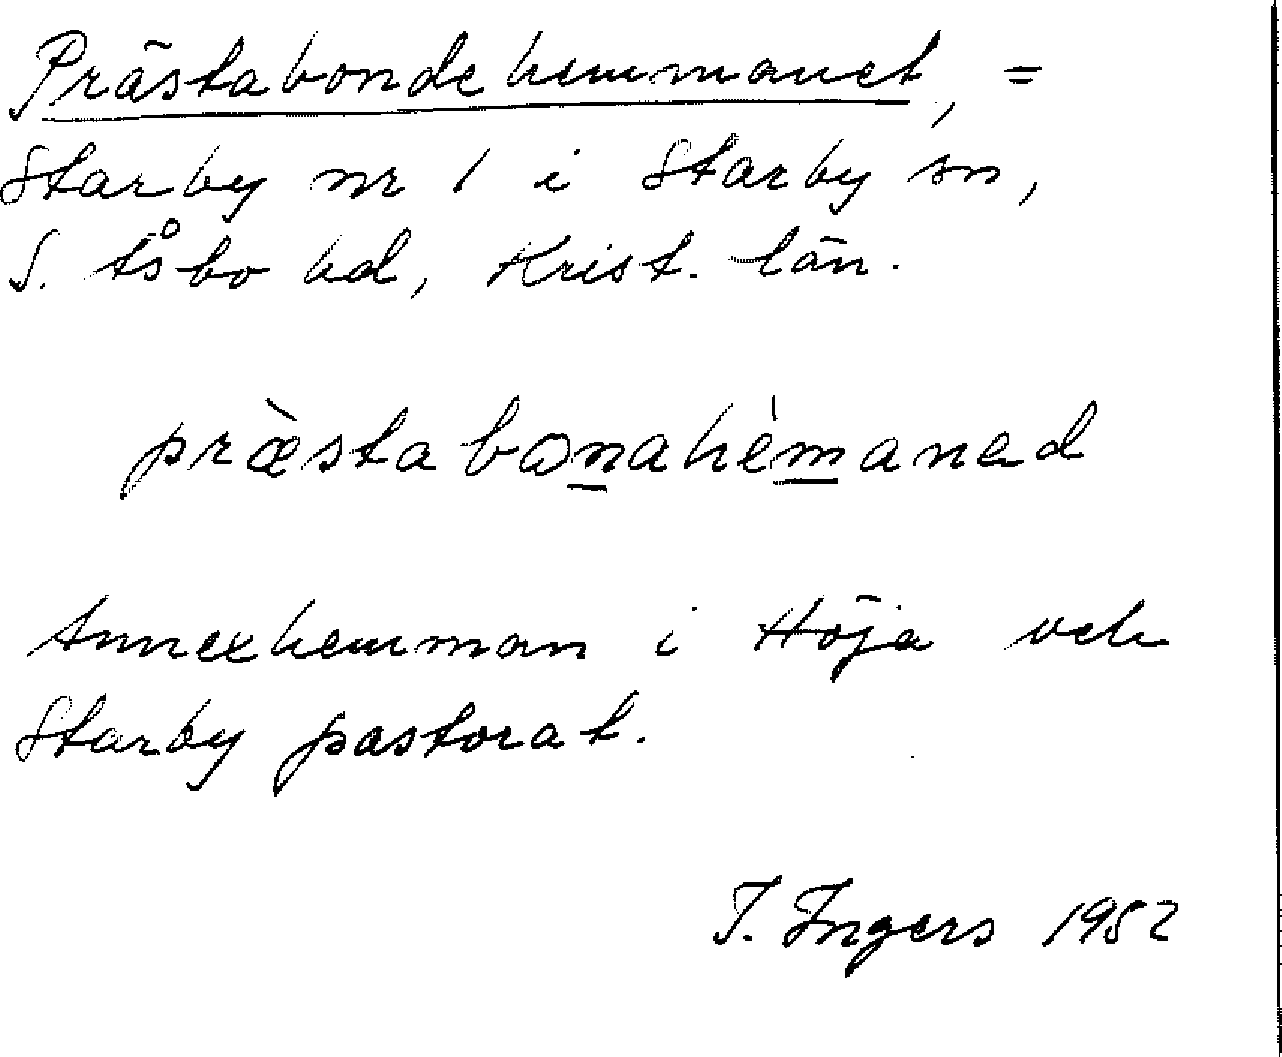 Prästabondehemmanet, =
Starby nr 1 i Starby sn,
S. Åsbo hd, Krist. län.
præ̀stabon̲ahèm̲anad
Annexhemman i Höja och
Starby pastorat.
I. Ingers 1952